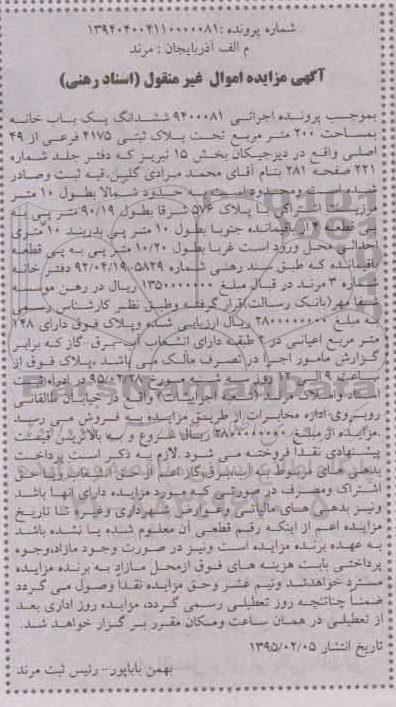 شماره پرونده :۱۳۹۴۰۴۰۰۴۱۱۰۰۰۰۰۸۱
م الف آذربایجان : مرند
آگهی مزایده اموال غیر منقول (اسناد رهنی)
بموجب پرونده اجرائی ۹۴۰۰۰۸۱ ششدانگ یک باب خانه
بمساحت ۲۰۰ متر مربع تحت پلاک ثبتی ۴۱۷۵ فرعی از ۴۹
اصلی واقع در دیزجیکان بخش ۱۵ تبریز که دفتر جلد شماره
۲۲۱ صفحه ۲۸۱ بنام آقای محمد مرادی گلین قیه ثبت وصادر
شده است ومحدود است به حدود شمالا بطول ۱۰ متر
اشتراکی با پلاک ۵۷۶ شرقا بطول ۹۰/۱۹ متر پی به
پی قطعه ۴ باقیمانده جنوبا بطول ۱۰ متر پی بدربند ۱۰ متری
احداثی محل ورود است غربا بطول ۱۰/۲۰ متر پی به پی قطعه
باقیمانده که طبق سند رهنی شماره ۵۸۲۹-۹۲/۰۴/۱۹ دفتر خانه
شماره ۳ مرند در قبال مبلغ ۱۳۵۰۰۰۰۰۰۰ ریال در رهن موسسه
مهر(بانک رسالت)قرار گرفته وطبق نظر کارشناس رسمی
به مبلغ ۲۸۰۰۰۰۰۰۰۰ ریال ارزیابی شده وپلاک فوق دارای ۱۴۸
متر مربع اعیانی در ۲ طبقه دارای انشعاب آب-برق-گاز که برابر
گزارش مامور اجرا در تصرف مالک می باشد .پلاک فوق از
ساعت ۹ الی ۱۲ روز مورخ ۹۵/۰۲/۲۸ در اداره ثبت
اسناد واملاک مرند (شعبه اجرائیات) واقع در خیابان طالقانی
روبروی اداره مخابرات از طریق مزایده به فروش می رسد
.مزایده از مبلغ ۲۸۰۰۰۰۰۰۰۰ ریال شروع و به بالاترین قیمت
پیشنهادی نقدا فروخته می شود .لازم به ذکر است پرداخت
بدهی های مربوط به آب،برق،گاز اعم از حق انشعاب ویا حق
اشتراک ومصرف در صورتی که مورد مزایده دارای آنها باشد
ونیز بدهی های مالیاتی وعوارض شهرداری وغیره تا تاریخ
مزایده اعم از اینکه رقم قطعی آن معلوم شده یا نشده باشد
به عهده برنده مزایده است ونیز در صورت وجود مازاد،وجوه
پرداختی بابت هزینه های فوق ازمحل مازاد به برنده مزایده
مسترد خواهدشد ونیم عشر وحق مزایده نقدا وصول می گردد
ضمنا چنانچه روز تعطیلی رسمی گردد، مزایده روز اداری بعد
از تعطیلی در همان ساعت ومکان مقرر بر گزار خواهد شد.
تاریخ انتشار ۱۳۹۵/۰۲/۰۵
بهمن باباپور- رئیس ثبت مرند